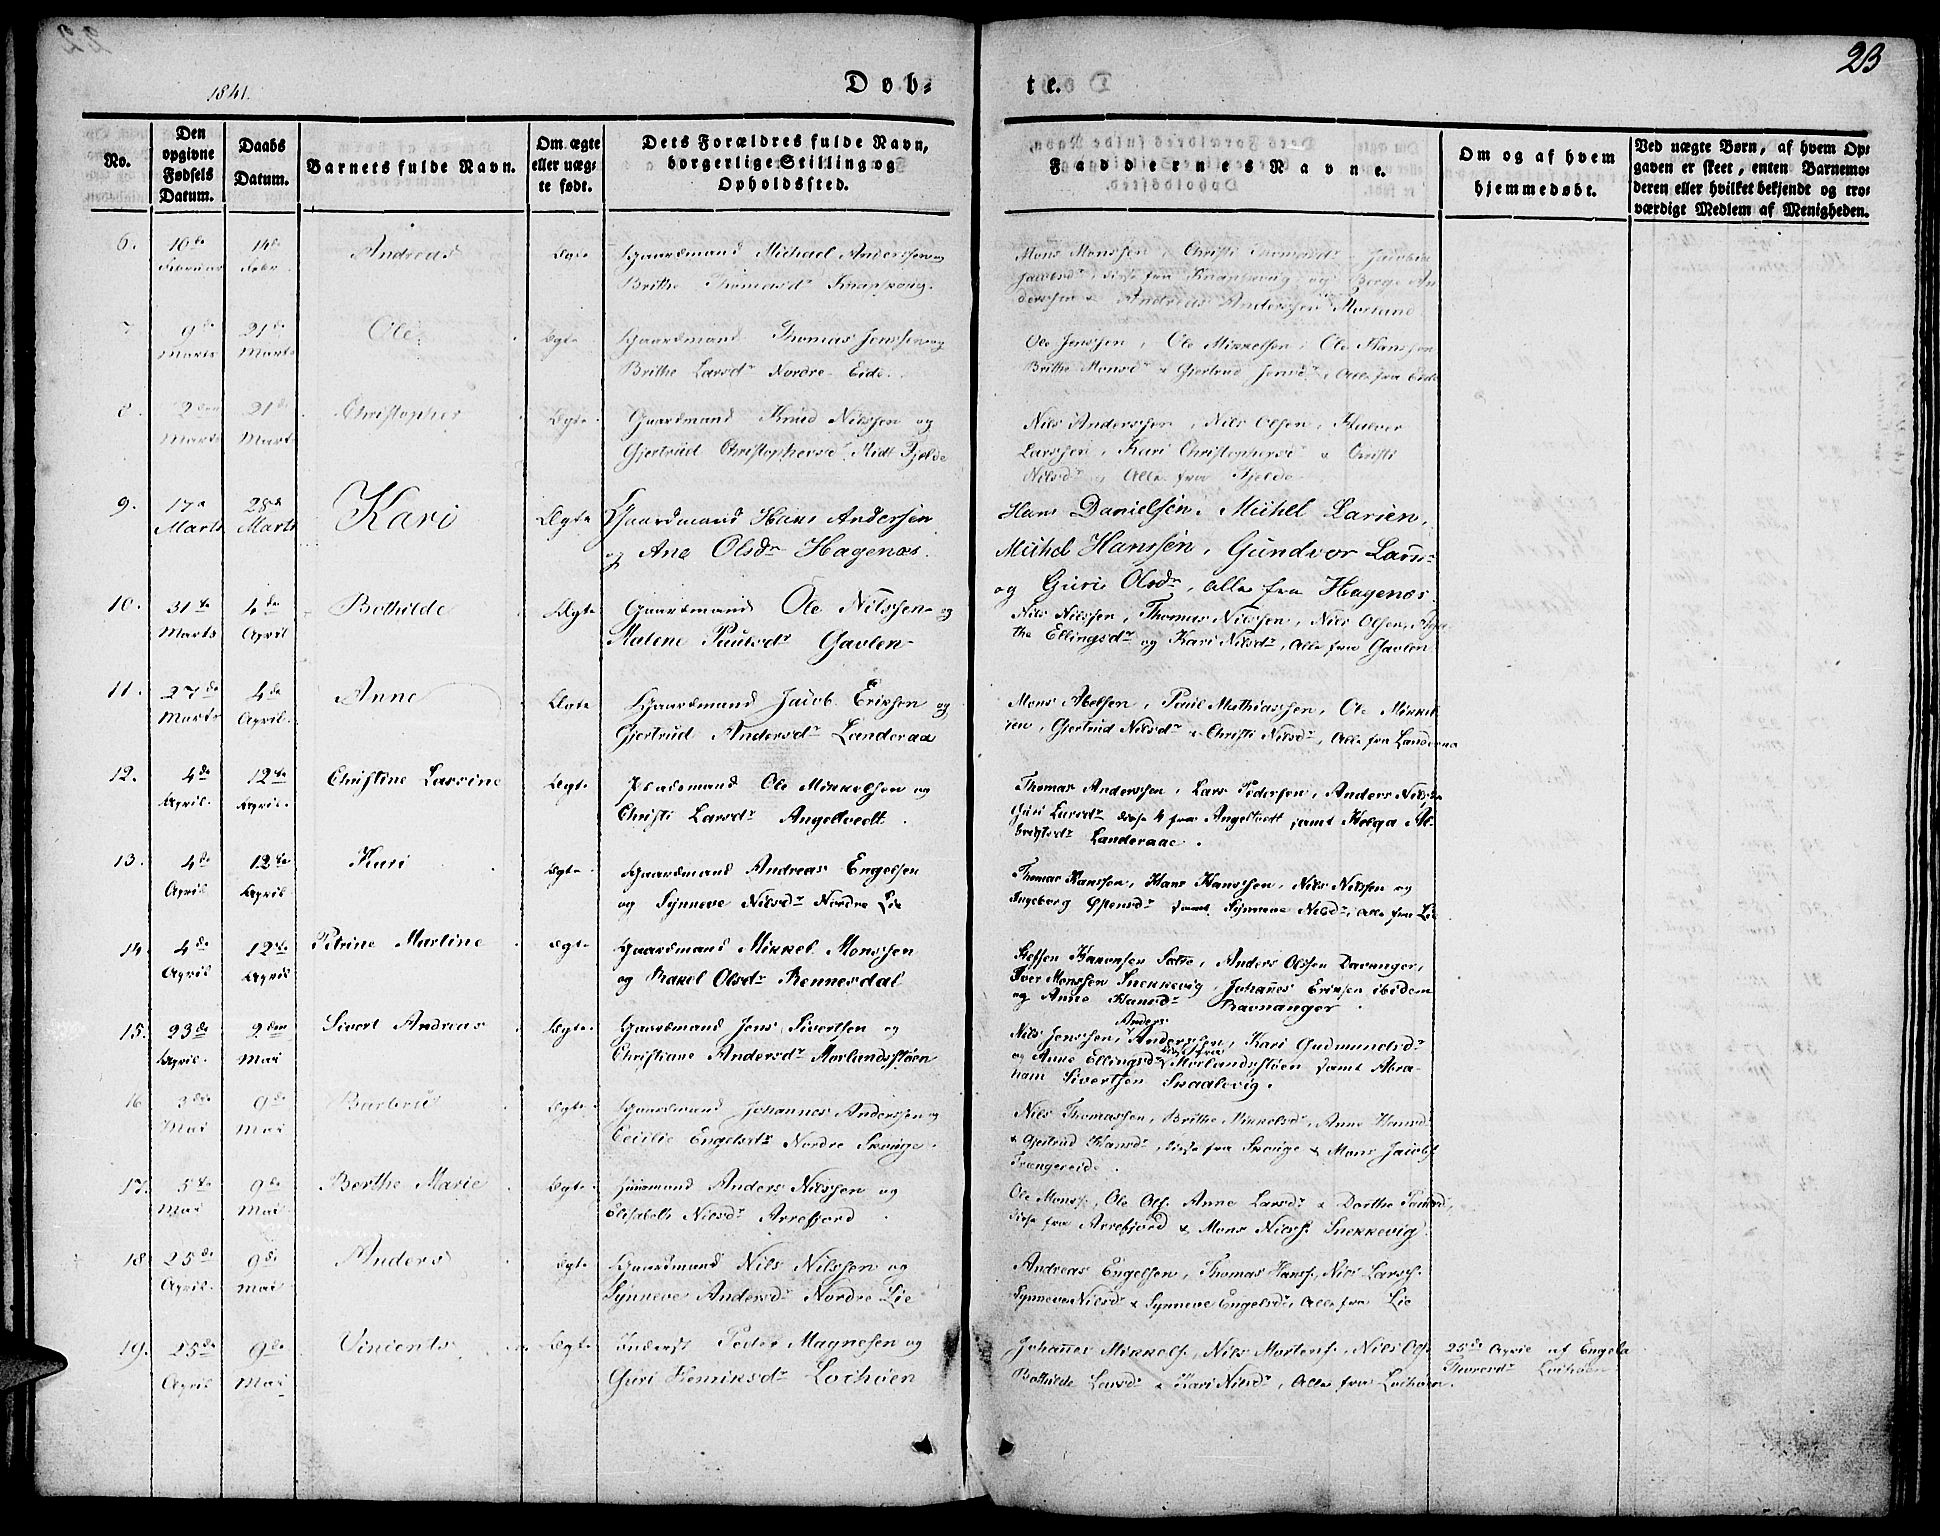 1841.
Døb-
te.
23
No.
Den opgivne Fødsels Datum.
Daabs Datum.
Barnets fulde Navn.
Om ægte eller uægte født.
Dets Forældres fulde Navn, borgerlige Stilling og Opholdssted.
Faddernes Navne.
Om og af hvem hjemmedøbt.
Ved uægte Børn, af hvem Opgaven er skeet, enten Barnemoderen eller hvilket bekjendt og troværdigt Medlem af Menigheden.
6. 10de Februar 14de Febr. Andreas Ægte Gaardmand Michael Anderssen og
Brithe Thomasdr
Mons Monssen, Christi Thomasdr
disse fra og Børge An-
derssen & Andreas Anderssen Morland
7. 9de Marts 21de Marts Ole Ægte Gaardmand Thomas Jenssen og
Brithe Larsdr Nordre Eide.
Ole Jenssen, Ole Mikkelsen, Ole Hanssen
Brithe Monsdr & Gjertrud Jensdr, Alle fra Eide
8. 2den Marts 21de Marts Christopher Ægte Gaardmand Knud Nilssen og
Gjertrud Christophersdr Midt Fjelde
Nils Anderssen, Nils Olsen, Halver
Larssen, Kari Christophersdr & Christi
Nilsdr, Alle fra Fjelde
9. 17de Marts 28de Marts Kari Ægte Gaardmand Hans Andersen
og Ane Olsdr Hagenæs.
Hans Danielsen, Michel Larsen,
Michel Hanssen, Gundvor Larsdr
og Guri Olsdr, alle fra Hagenæs.
10. 31te Marts 4de April Bothilde Ægte Gaardmand Ole Nilssen og
Malene Paulsdr Gavlen
Nils Nilssen, Thomas Nilssen, Nils Olsen,
the Ellingsdr og Kari Nilsdr, Alle fra Gavlen
11. 27de Marts 4de April Anne Ægte Gaardmand Jacob Eriksen og
Gjertrud Andersdr Landeraa
Mons Abelsen, Paul Mathiassen, Ole Mikkel-
sen, Gjertrud Nilsdr & Christi Nilsdr, Alle fra Landeraa
12. 4de April 12te April Christine Larsine Ægte Ole Mikkelsen og
Christi Larsdr Angeltvedt.
Thomas Anderssen, Lars Pedersen, Anders Nilssen
Guri Larsdr disse 4 fra Angeltvedt samt Helga Al-
Landeraae.
13. 4de April 12te April Kari Ægte Gaardmand Andreas Engelsen
og Synneve Nilsdr Nordre Lie
Thomas Hanssen, Hans Hanssen, Nils Nilssen og
Ingeborg Østensdr samt Synneve Nilsdr, Alle fra Lie
14. 4de April 12te April Petrine Martine Ægte Gaardmand Mikkel Monssen
og Rakel Olsdr Rennesdal
Steffen Sætre, Anders Olssen Davanger,
Iver Monssen Snekkevig, Johannes Eriksen ibidem
og Anne Hansdr Ravnanger.
15. 23de April 2den Mai Sivert Andreas Ægte Gaardmand Jens Sivertsen og
Christiane Andersdr Morlandsstøen
Nils Jenssen, Anders Anderssen, Kari Gudmundsdr
og Anne Ellingsdr disse fra Morlandsstøen samt Abra-
ham Sivertsen Skaalevig.
16. 3die Mai 9de Mai Barbru Ægte Gaardmand Johannes Anderssen og
Cecilie Engelsdr Nordre Skouge.
Nils Thomassen, Brithe Mikkelsdr, Anne Hansdr
& Gjertrud Hansdr, disse fra Skouge & Mons Jacobs.
Trengereide.
17. 5te Mai 9de Mai Berthe Marie Ægte Huusmand Anders Nilssen og
Elisabeth Nilsdr Arrefjord.
Ole Monss., Ole Ols. Anne Larsdr & Dorthe
disse fra Arrefjord & Mons Nilss. Snekkevig.
18. 25de April 9de Mai Anders Ægte Gaardmand Nils Nilssen og
Synneve Andersdr Nordre Lie
Andreas Engelsen, Thomas Hanss., Nils Larss.
Synneve Nilsdr & Synneve Engelsdr, Alle fra Lie
19. 25de April 9de Mai Vincents Ægte Inderst Peder Magnesen og
Guri Henriksdr Loihoen
Johannes Mikkels., Nils Mortens., Nils Ols.
Bothilde Larsdr & Kari Nilsdr, Alle fra Loihoen.
25de April af Engela
Thoresdr Loihoen